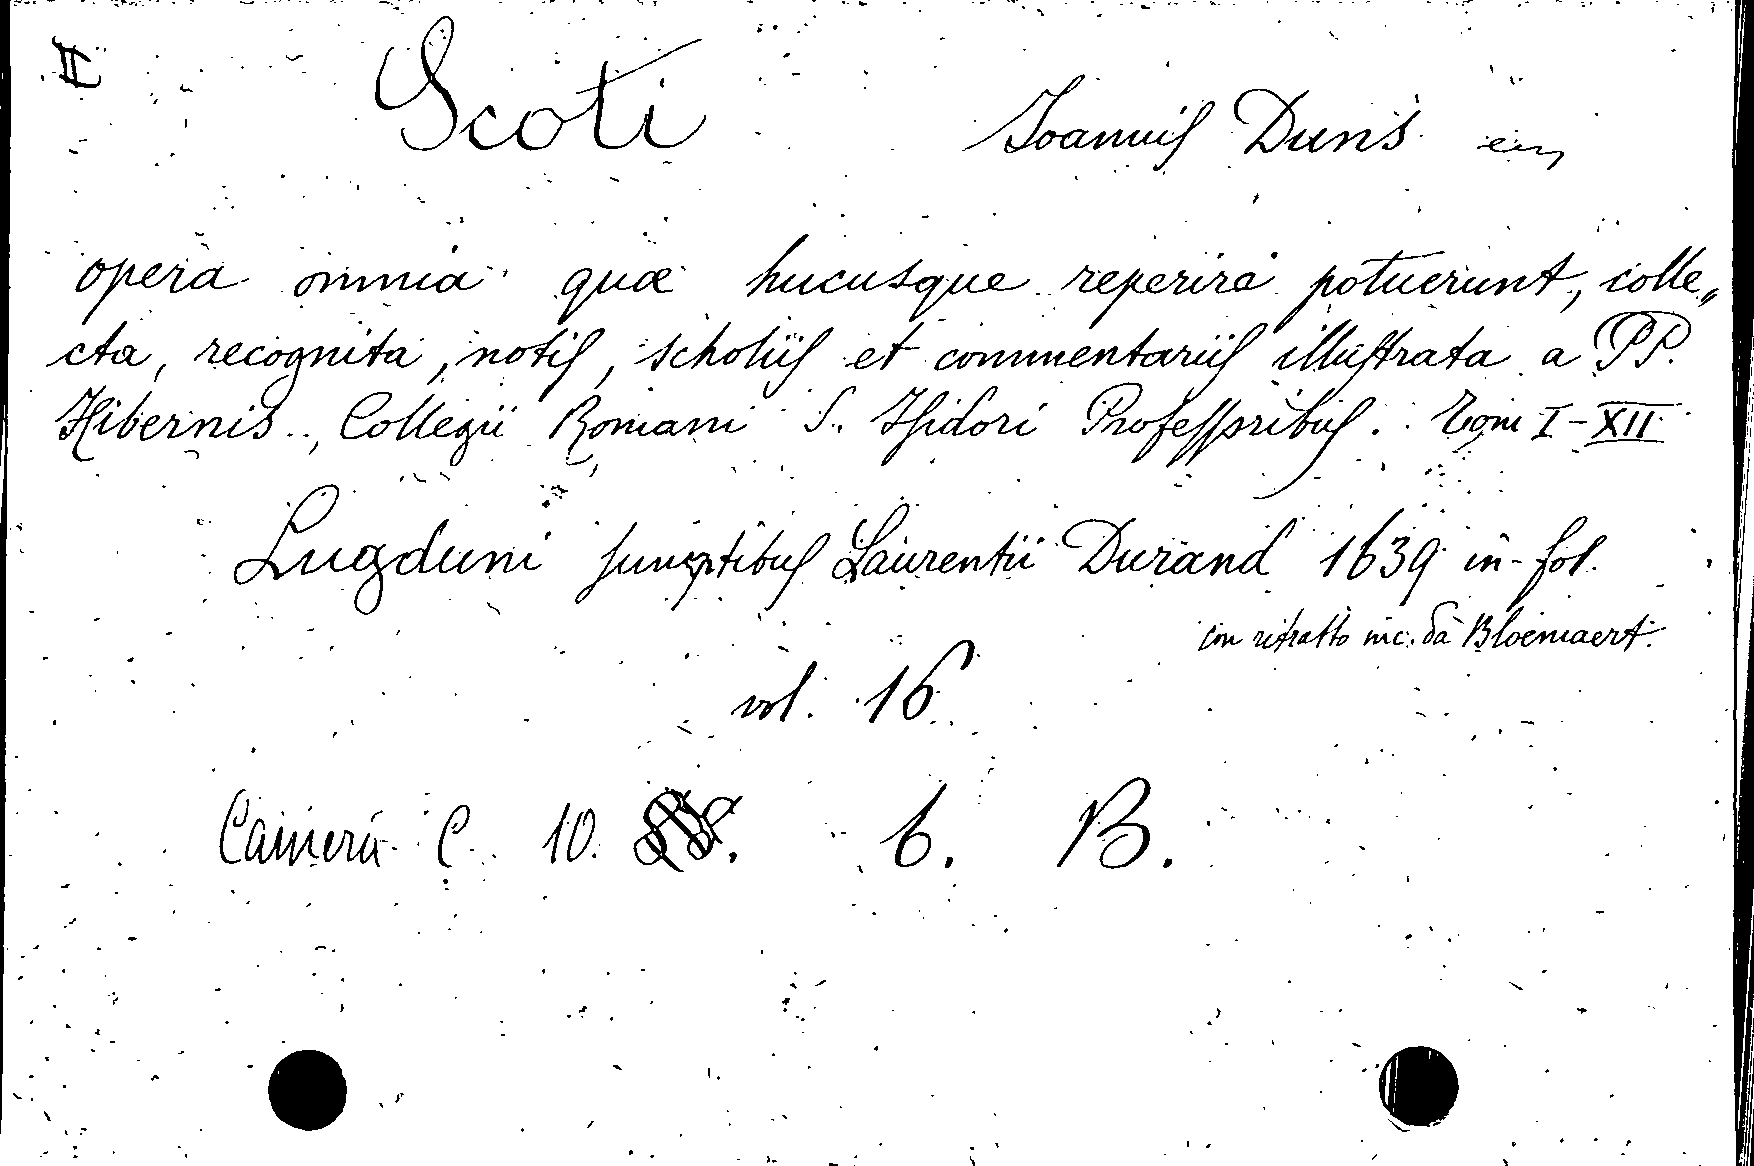 II Scoti Joannis Duns
opera omnia quæ hucusque reperiri potuerunt, colle„
cta, recognita, notis, scholiis et commentariis illustrata a PP.
Hibernis, Collegii Romani S. Isidori Professoribus. Tom I-XII
Lugduni sumptibus Laurentii Durand 1639 in-fol.
con ritratto inc. da Bloemaert.
vol. 16
Camera C. 10. 6. B.